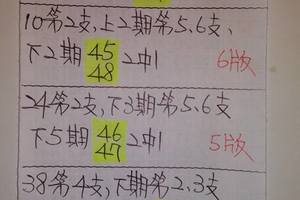 10第2支,上2期第5.6支、
下2期 45 48 2中1 6版
24第2支,下3期第5.6支
下5期 46 47 2中1 5版
38第4支,下期第2、3支